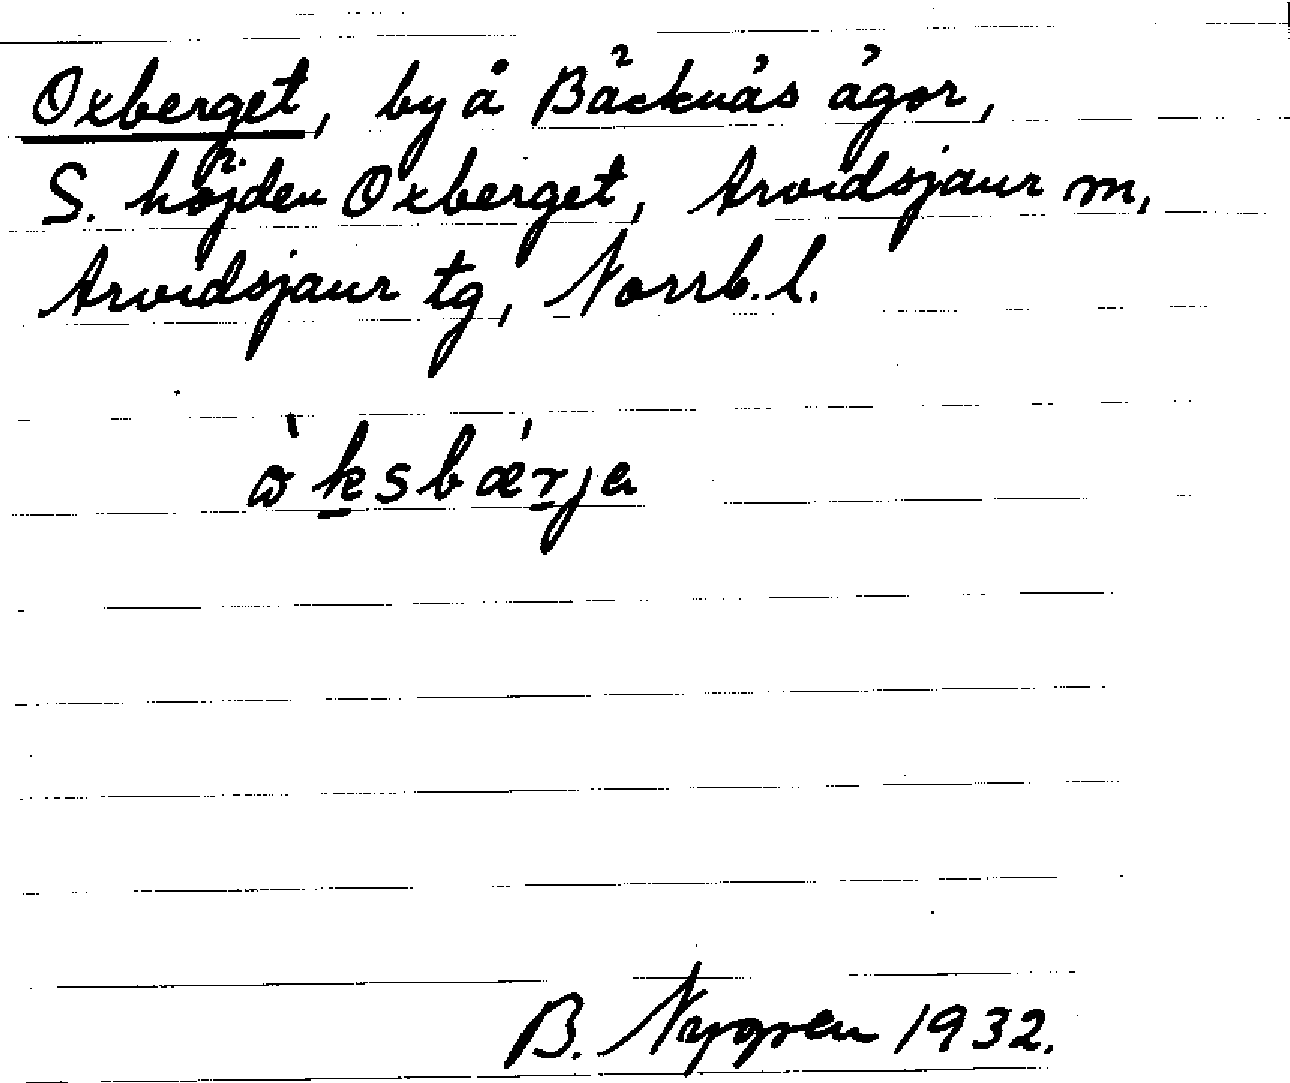 Oxberget, by å Bäcknäs ägor,
S. höjden Oxberget, Arvidsjaur m,
Arvidsjaur tg, Norrb. l.
ὼksbǽrja
B. Nygren 1932.